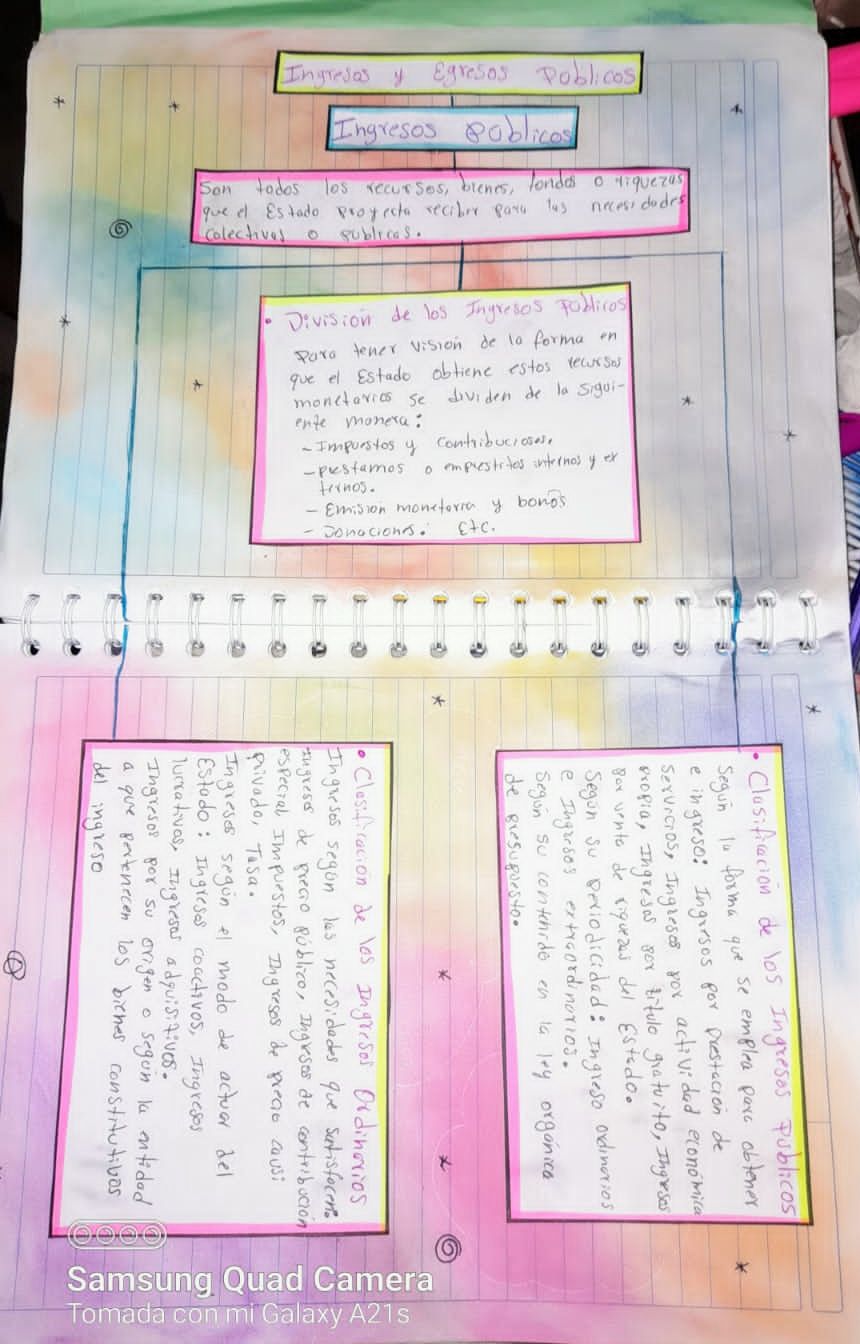 Ingresos y Egresos Públicos
Ingresos Públicos
Son todos los recursos, bienes, fondos o riquezas
que el Estado proyecta recibir para las necesidades
colectivas o públicas.
• División de los Ingresos Públicos
Para tener visión de la forma en
que el Estado obtiene estos recursos
monetarios se dividen de la sigui-
ente manera:
- Impuestos y contribuciones.
- prestamos o emprestitos internos y ex
ternos.
- Emisión monetaria y bonos
- Donaciones. Etc.
• Clasificación de los Ingresos Ordinarios
Ingresos según las necesidades que satisfacen:
Ingresos de precio público, Ingresos de contribución
especial Impuestos, Ingresos de precio causi
privado, Tasa.
Ingresos según el modo de actuar del
Estado: Ingresos coactivos, Ingresos
lucrativos, Ingresos adquisitivos.
Ingresos por su origen o según la entidad
a que pertenecen los bienes constitutivos
del ingreso
• Clasificación de los Ingresos Públicos
Según la forma que se emplea para obtener
e ingreso: Ingresos por prestación de
servicios, Ingresos por actividad económica
propia, Ingresos por título gratuito, Ingresos
por venta de riquezas del Estado.
Según su periodicidad: Ingreso ordinarios
e Ingresos extraordinarios.
Según su contenido en la ley orgánica
de presupuesto.
Samsung Quad Camera
Tomada con mi Galaxy A21s